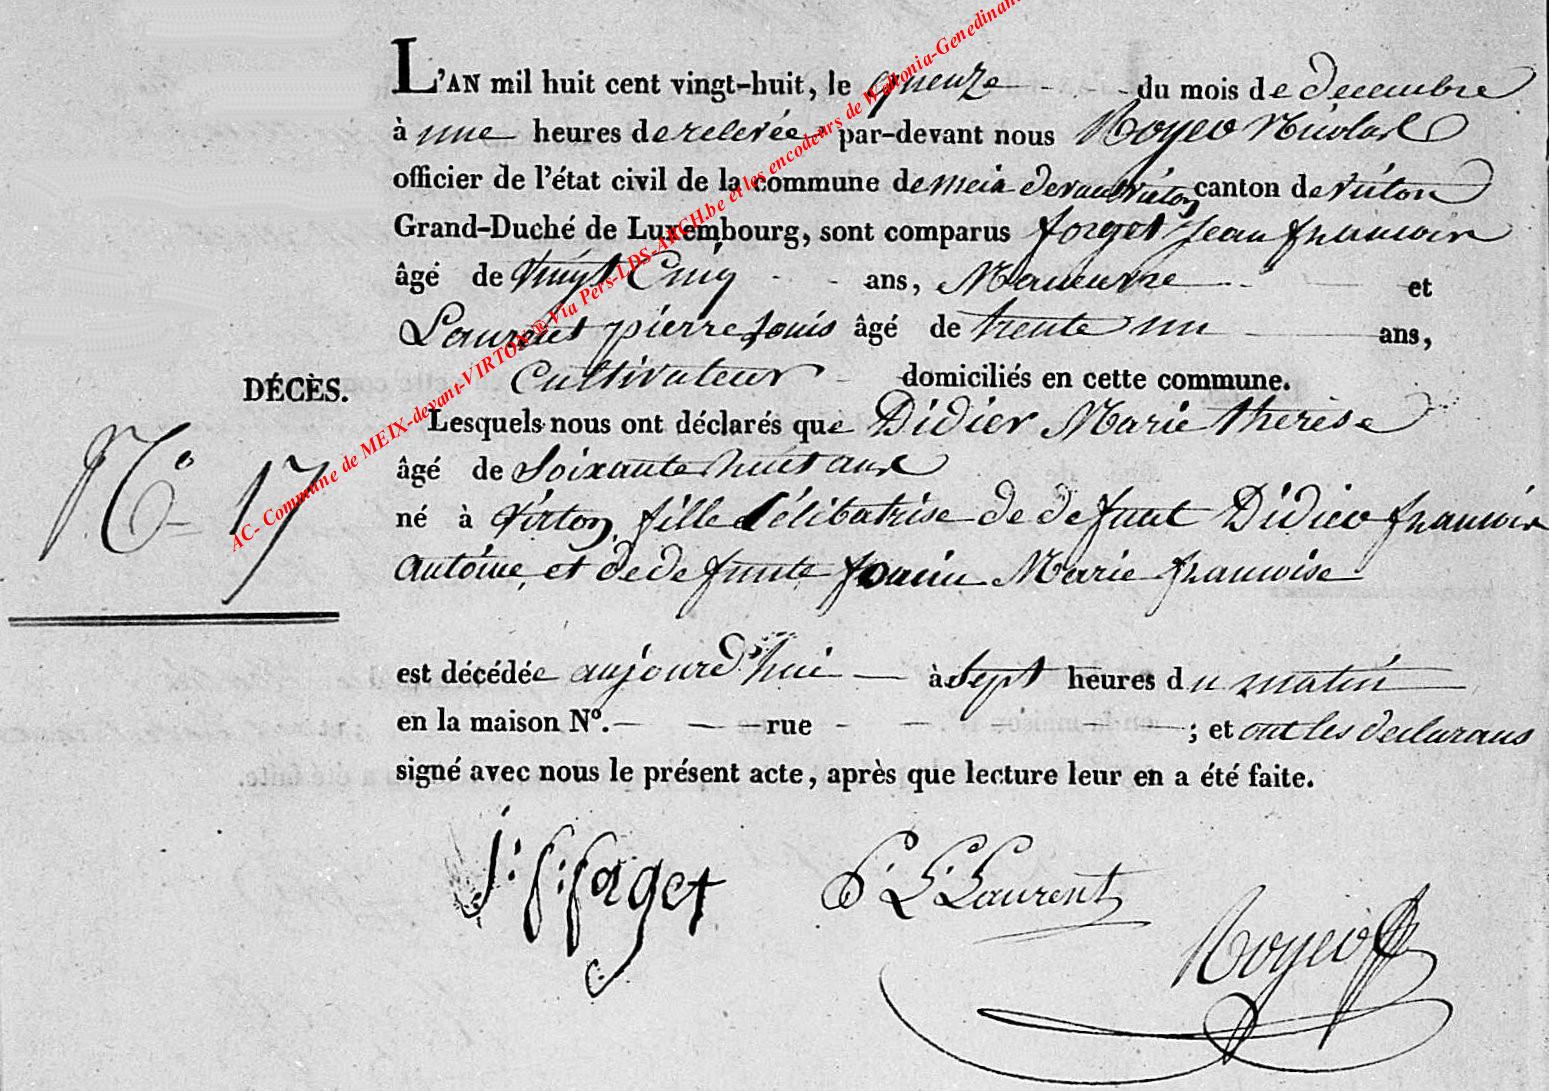 L'AN mil huit cent vingt-huit, le quenze du mois de decembre
à une heures de relevée par-devant nous Royer Nicolas
officier de l'état civil de la commune de meix devant virton canton de virton
Grand-Duché de Luxembourg, sont comparus forget Jean francois
âgé de vingt Cinq ans, Maneuvre et
Laurent pierre Louis âgé de trente un ans,
cultivateur domiciliés en cette commune.
DÉCÈS.
Lesquels nous ont déclarés que Didier Marie therese
N° 17
âgé de Soixante huit ans
né à virton fille Célibatrise de defunt Didier francois
Antoine et de defunte Marie francoise
est décédée aujourd'hui à sept heures du matin
en la maison N°. rue ; et ont les declarans
signé avec nous le présent acte, après que lecture leur en a été faite.
J: f: forget P. L. Laurent
Royer
AC- Commune de MEIX-devant-VIRTON ® Via Pers-LDS-ARCH.be et les encodeurs de Wallonia-Genedinant